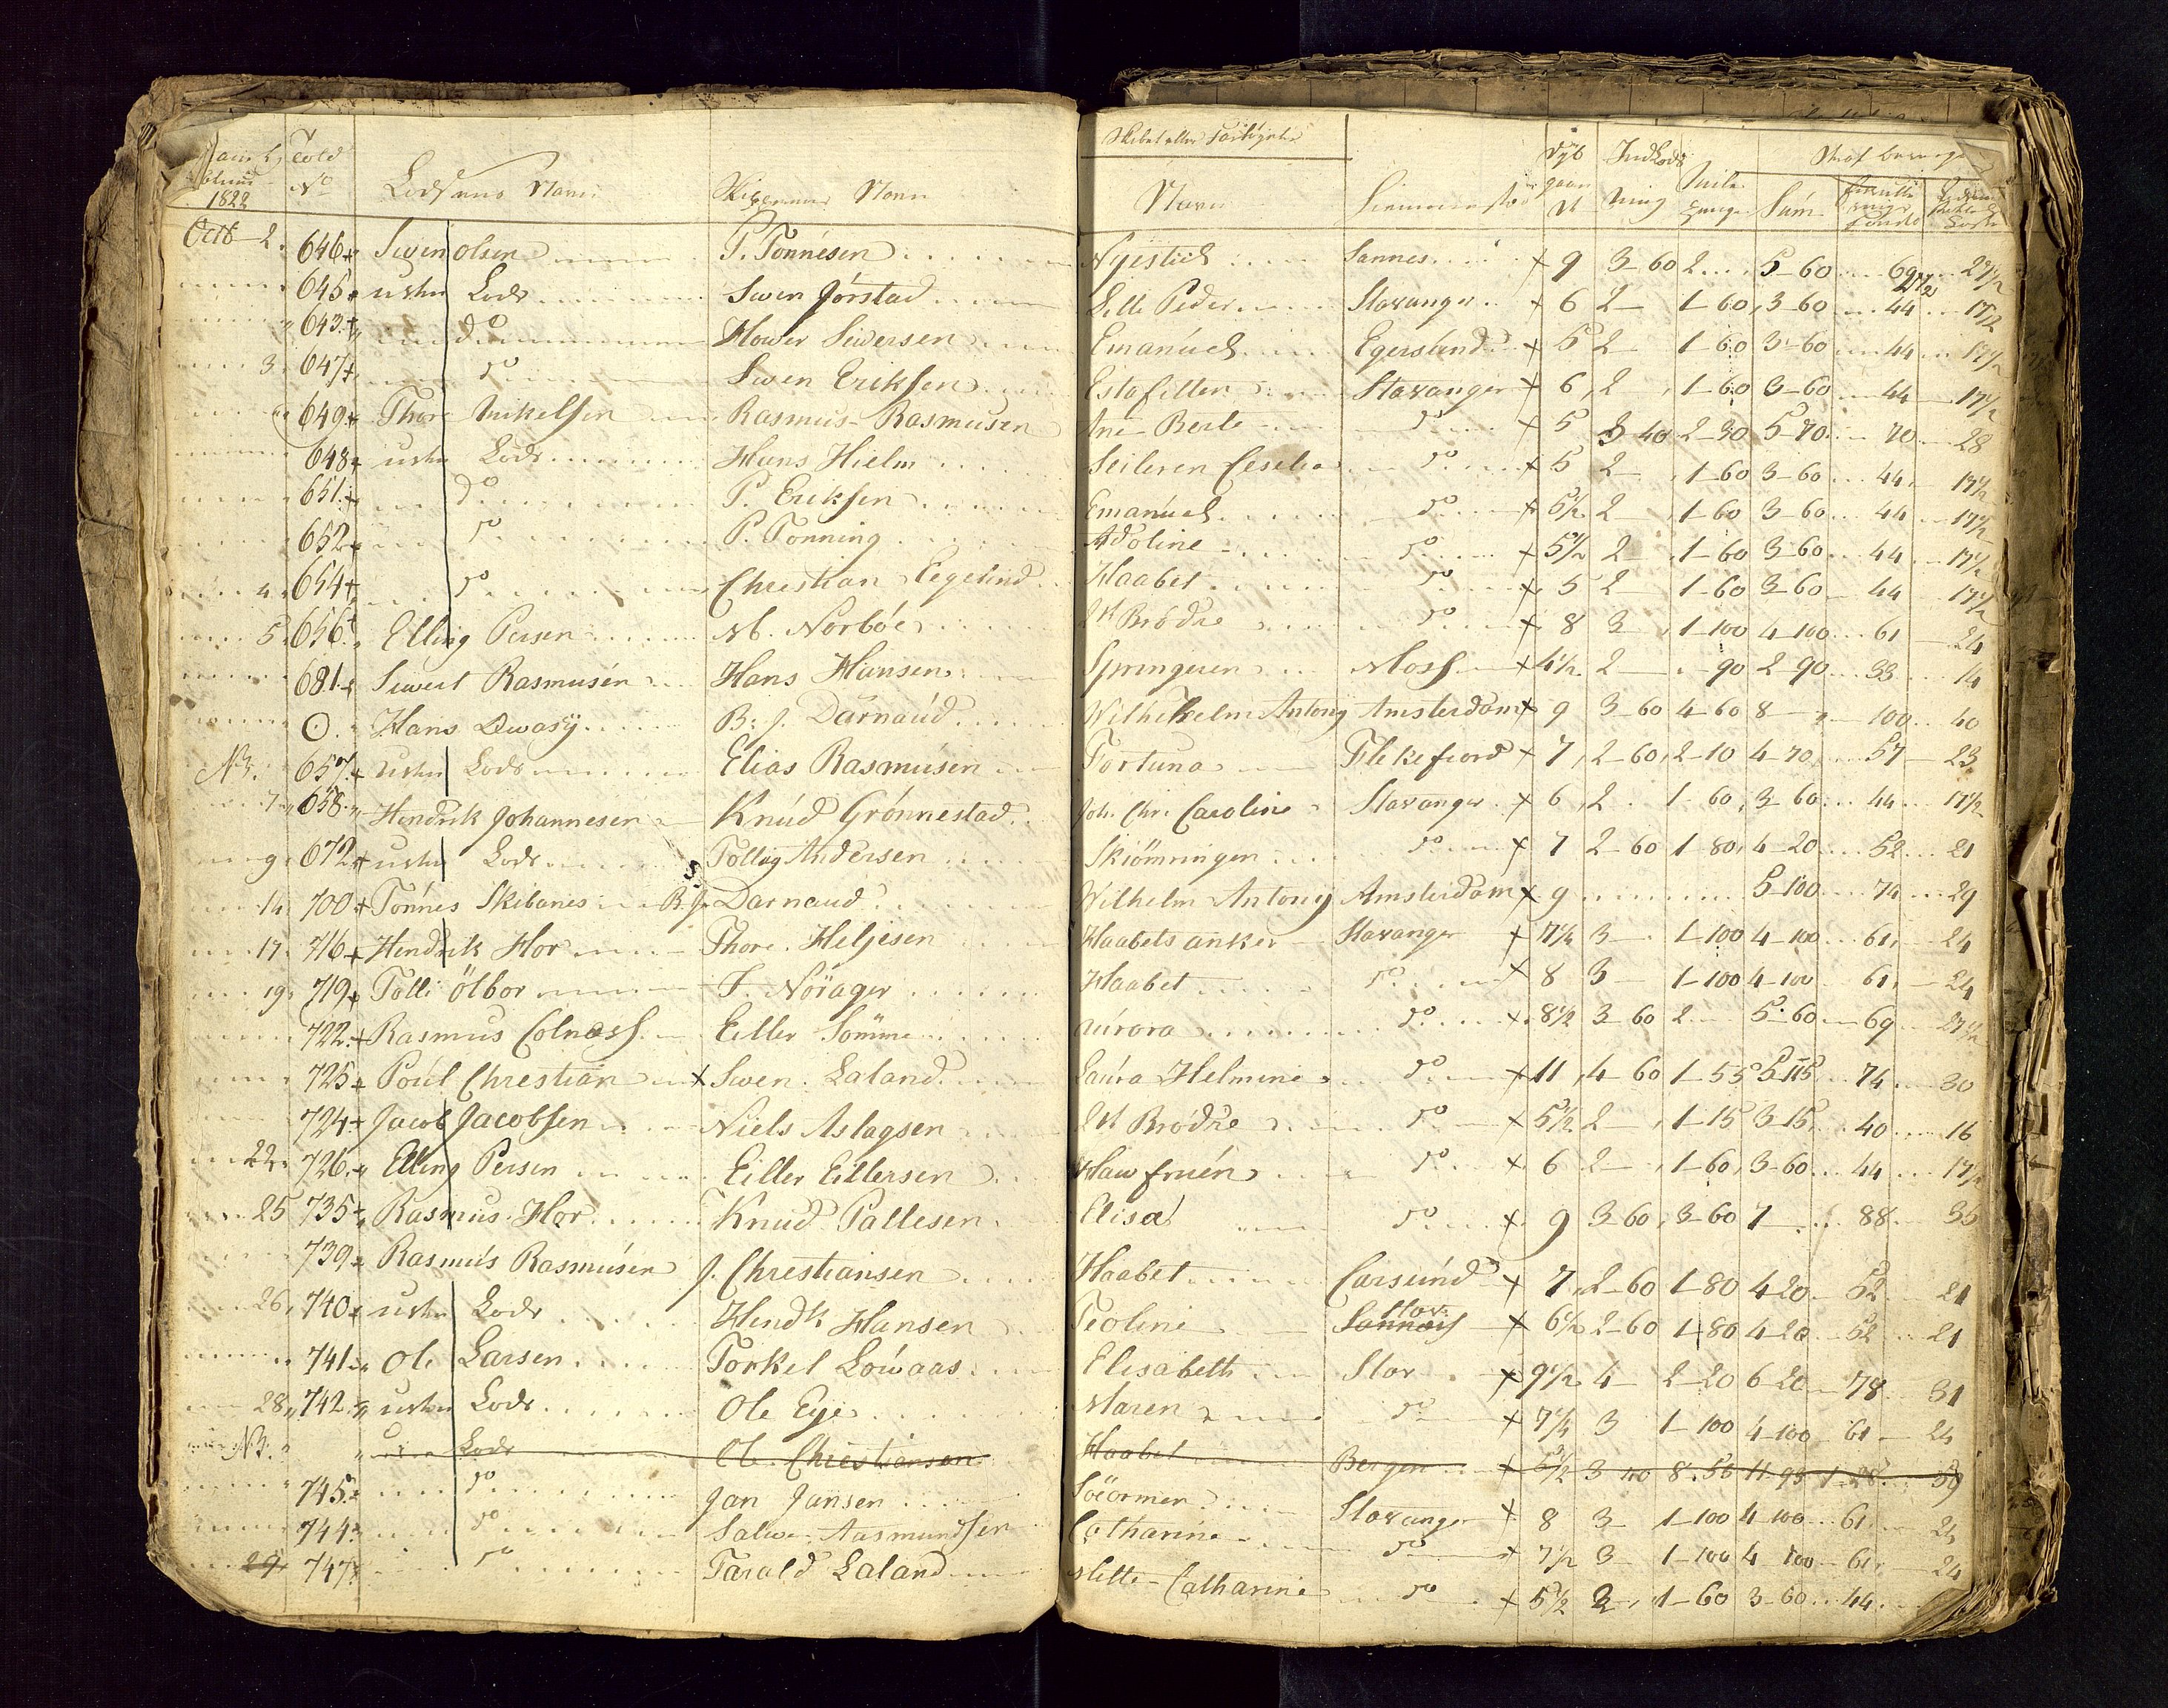 1822
Told No
Lodsens Navn
Skipperens Navn
Skibet eller Fartøyets
Navn
Dyb gaaen
Ind Lods ning
Sum
Octb 2. 646 Swen olsen P. Tönnesen Nyestid Sannes 9 3-60 2 5-60 69 27 1/2
645 ustu Lods Swen Jórstad Lille Peder Stavanger 6 2 1-60 3-60 44 17 1/2
643 do Hower Siversen Emanuel Egersund 5 2 1-60 3-60 44 17 1/2
3 647 do Swen Eriksen Estafetten Stavanger 6 2 1-60 3-60 44 17 1/2
649 Thore Mikelsen Rasmus Rasmusen Ane Berte do 5 3 40 2-30 5-70 70 28
648 ustu Lods Hans Hielm Seileren Ceselia do 5 2 1-60 3-60 44 17 1/2
651 do P. Eriksen Emanuel do 5 1/2 2 1-60 3-60 44 17 1/2
652 do P. Tonning Adoline do 5 1/2 2 1-60 3-60 44 17 1/2
4 654 do Chrestian Eegelind Haabet do 5 2 1-60 3-60 44 17 1/2
5 656 Elling Persen M. Norböe Brödre do 8 3 1-100 4-100 61 24
681 Siwert Rasmusen Hans Hansen Springeren Moss 4 1/2 2 90 2-90 33 14
O. Hans Dwasy B. J. Darnaud Wilhelm Antony Amsterdam 9 3-60 4-60 8 100 40
N3. 657 ustu Lods Elias Rasmusen Fortuna Flekefiord 7 2-60 2-10 4-70 57 23
7 658 Hendrik Johannesen Knud Grönnestad Joh. Chr. Caroline Stavanger 6 2 1-60 3-60 44 17 1/2
9 672 ustu Lods Tollag Andersen Skiömningen do 7 2-60 1-80 4-20 52 21
14 700 Tönnes Skibanes B. J. S. Darnaud Wilhelm Antony Amsterdam 9 5-100 74 29
17 716 Hendrik Hor Thore Heljesen Haabets anker Stavanger 7 1/4 3 1-100 4-100 61 24
19 719 Tolli ölbor F. Nörager Haabet do 8 3 1-100 4-100 61 24
722 Rasmus Colness Eiller Sömme aurora do 8 1/2 3 60 2 5-60 69 27 1/2
725 Poul Chrestian Swen Laland Laura Helmine do 11 4 60 1-55 5-115 74 30
724 Jacob Jacobsen Niels Aslagsen Brödre do 5 1/2 2 1-15 3-15 40 16
22 726 Elling Persen Eiller Eillersen Haw fruen do 6 2 1-60 3-60 44 17 1/2
25 735 Rasmus Hor Knud Pallesen Elisa do 9 3 60 3-60 7 88 35
739 Rasmus Rasmusen J. Chrestiansen Haabet Carsund 7 2-60 1-80 4 20 52 21
26 740 ustu Lods Hendk Hansen Teoline Sannas Stav: 6 1/2 2-60 1-80 4-20 52 21
741 Ole Larsen Torkel Lowaas Elisabeth Stav 9 1/2 4 2-20 6 20 78 31
28 742 ustu Lods Ole Eye Maren do 7 1/4 3 1-100 4-100 61 24
N3. Lods Ole Chrestiansen Haabet Bergen 5 1/2 3 40 8-55 11-95 1-28 59
745 do Jan Jansen Söeormen Stavanger 8 3 1-100 4-100 61 24
744 do Salwe Aasmundsen Catharine do 7 1/2 3 1-100 4-100 61 24
29 747 do Tarald Laland Mette Catharine do 5 1/2 2 1-60 3-60 44